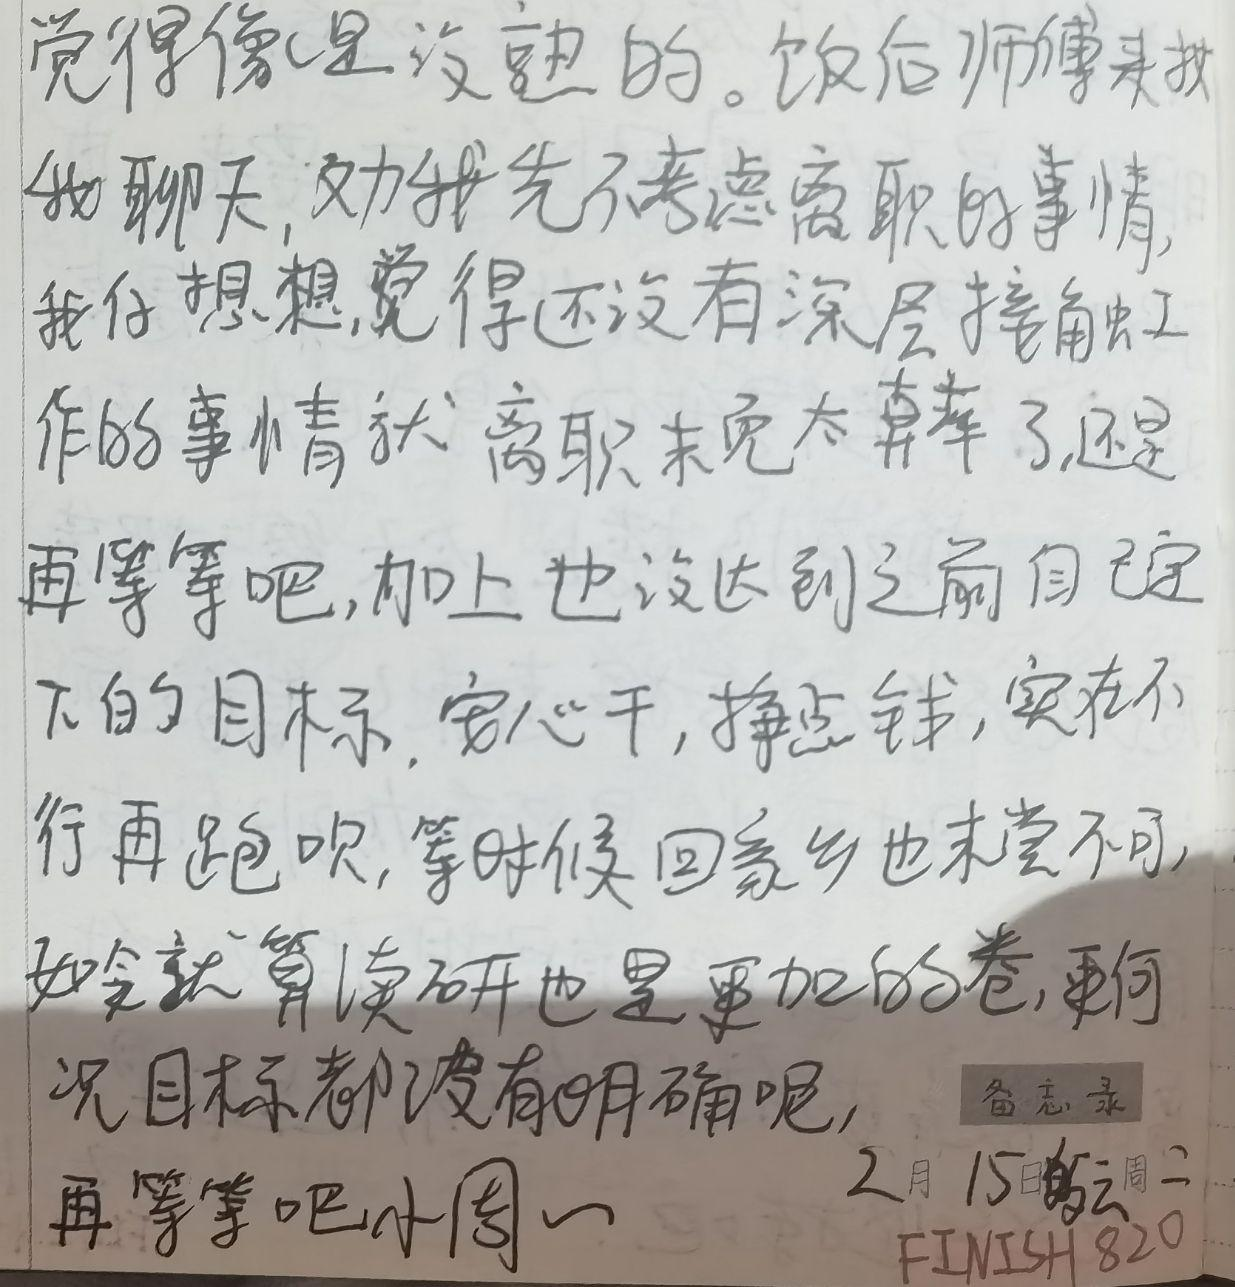 觉得像是没熟的。饭后师傅来找
我聊天,劝我先不考虑离职的事情,
我仔想想,觉得还没有深层接触工
作的事情就离职未免太草率了,还是
再等等吧,加上也没达到之前自己定
下的目标,安心干,挣点钱,实在不
行再跑呗,等时候回家乡也未尝不可,
如今就算读研也是更加的卷,更何
况目标都没有明确呢,
备忘录
再等等吧小周~
2月15日 周二
FINISH 820